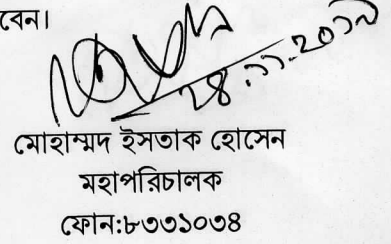 বেন।
২৪.১১.২০১৯
মোহাম্মদ ইসতাক হোসেন
মহাপরিচালক
ফোন:৮৩৩১০৩৪